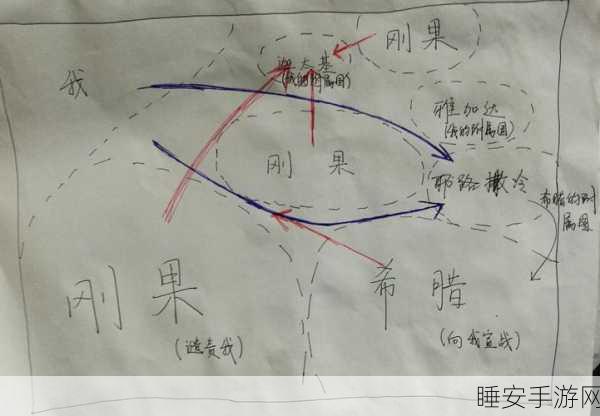 刚果
我
(我的附属国)
雅加达
(我的附属国)
刚果
耶路撒冷
希腊的附
属国
刚果
(谴责我)
希腊
(向我宣战)
睡安手游网